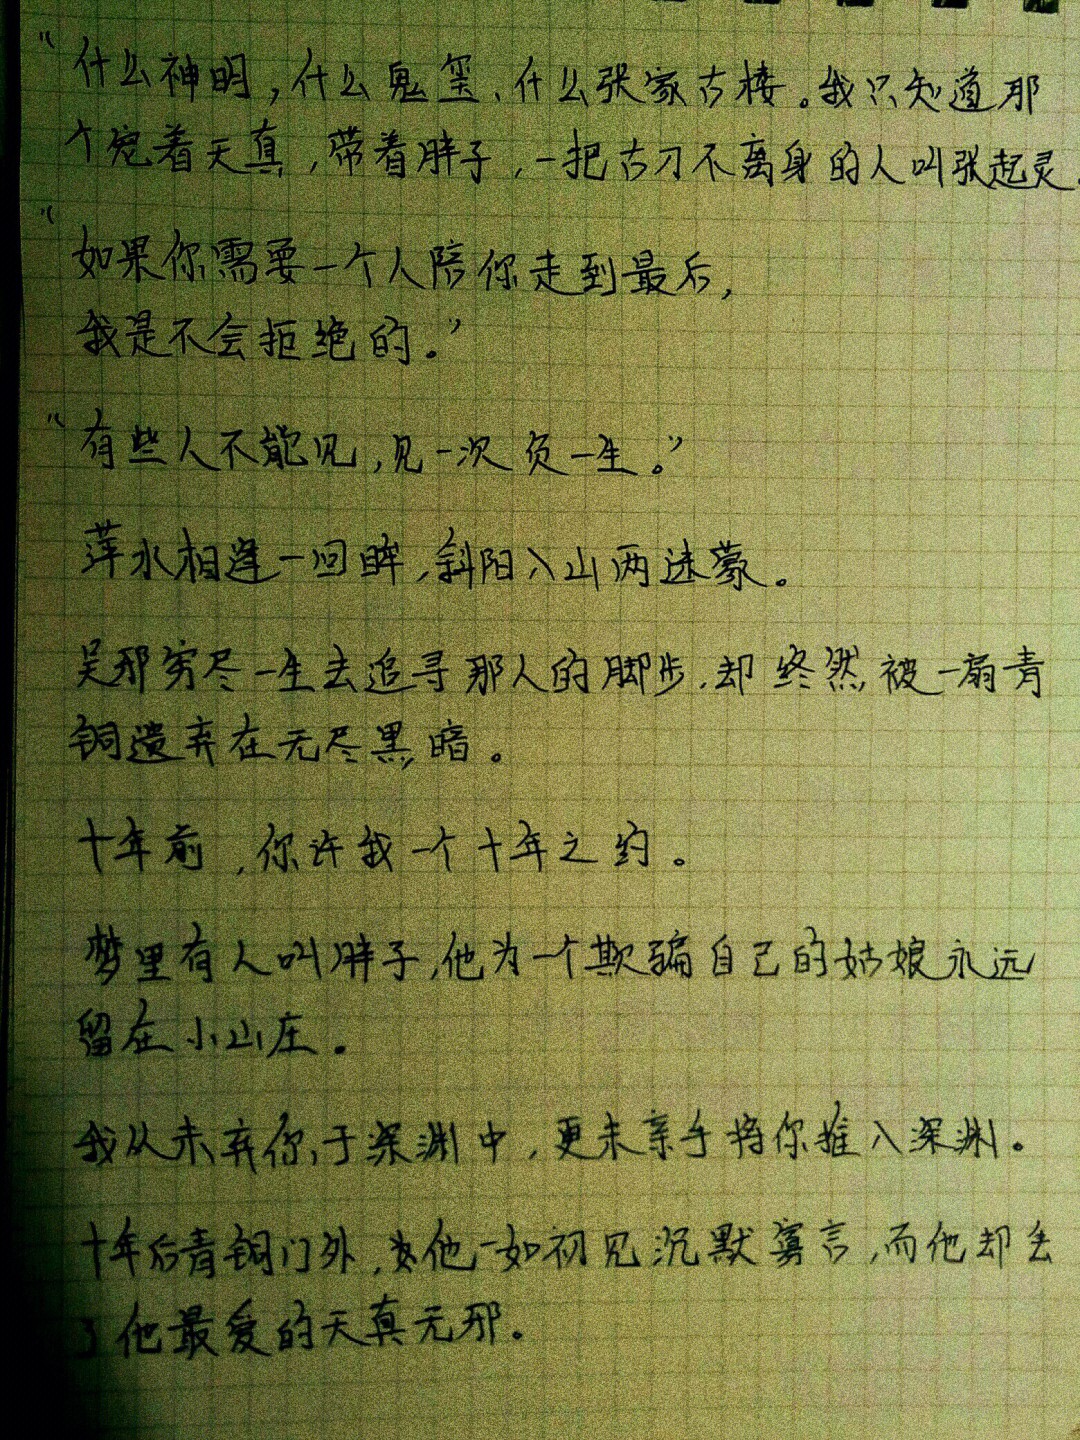 “什么神明,什么鬼玺、什么张家古楼。我只知道那
个宠着天真,带着胖子,一把古刀不离身的人叫张起灵。
“如果你需要一个人陪你走到最后,
我是不会拒绝的。”
“有些人不能见,见一次负一生。”
萍水相逢一回眸,斜阳入山两迷蒙。
吴邪穷尽一生去追寻那人的脚步,却终然被一扇青
铜遗弃在无尽黑暗。
十年前,你许我一个十年之约。
梦里有人叫胖子,他为一个欺骗自己的姑娘永远
留在小山庄。
我从未弃你于深渊中,更未亲手将你推入深渊。
十年后青铜门外,他一如初见沉默寡言,而他却丢
了他最爱的天真无邪。